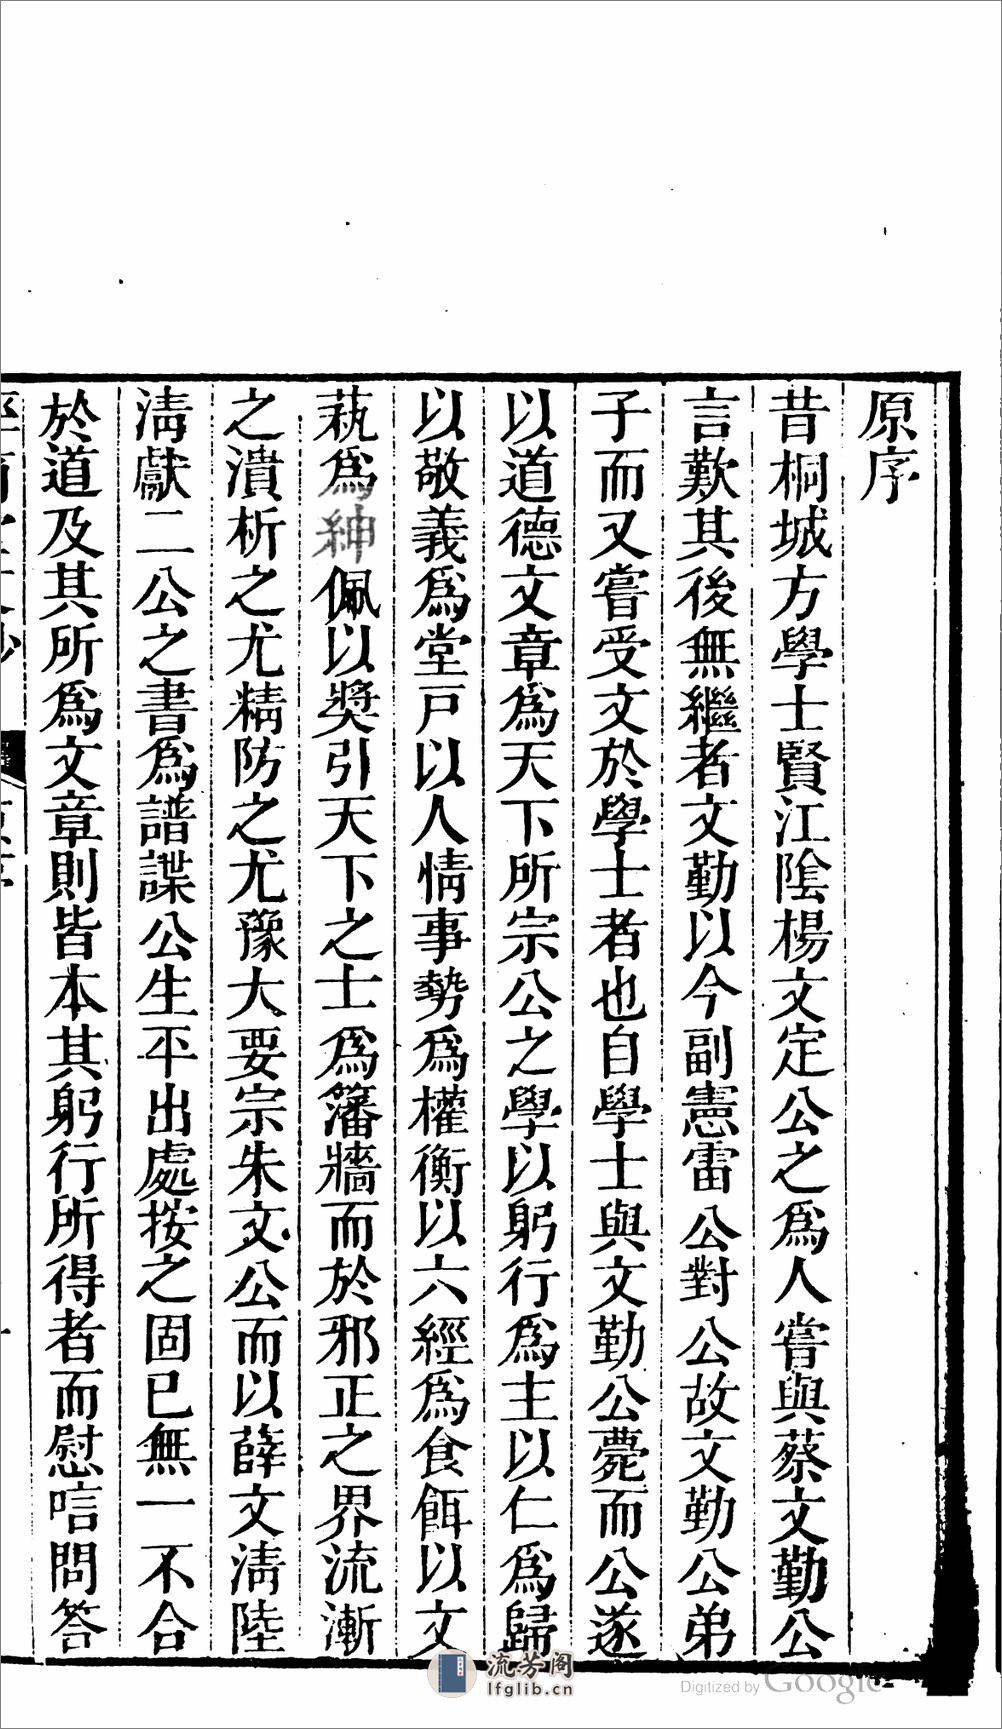 原序
昔桐城方學士賢江陰楊文定公之爲人嘗與蔡文勤公
言歎其後無繼者文勤以今副憲雷公對公故文勤公弟
子而又嘗受文於學士者也自學士與文勤公薨而公遂
以道德文章爲天下所宗公之學以躬行爲主以仁爲歸
以敬義爲堂戸以人情事勢爲權衡以六經爲食餌以文
蓺爲紳佩以奬引天下之士爲籓牆而於邪正之界流漸
之潰析之尤精防之尤豫大要宗朱文公而以薛文淸陸
淸獻二公之書爲譜諜公生平出處按之固已無一不合
於道及其所爲文章則皆本其躬行所得者而慰唁問答
流芳阁
lfglib.cn
Digitized by Google